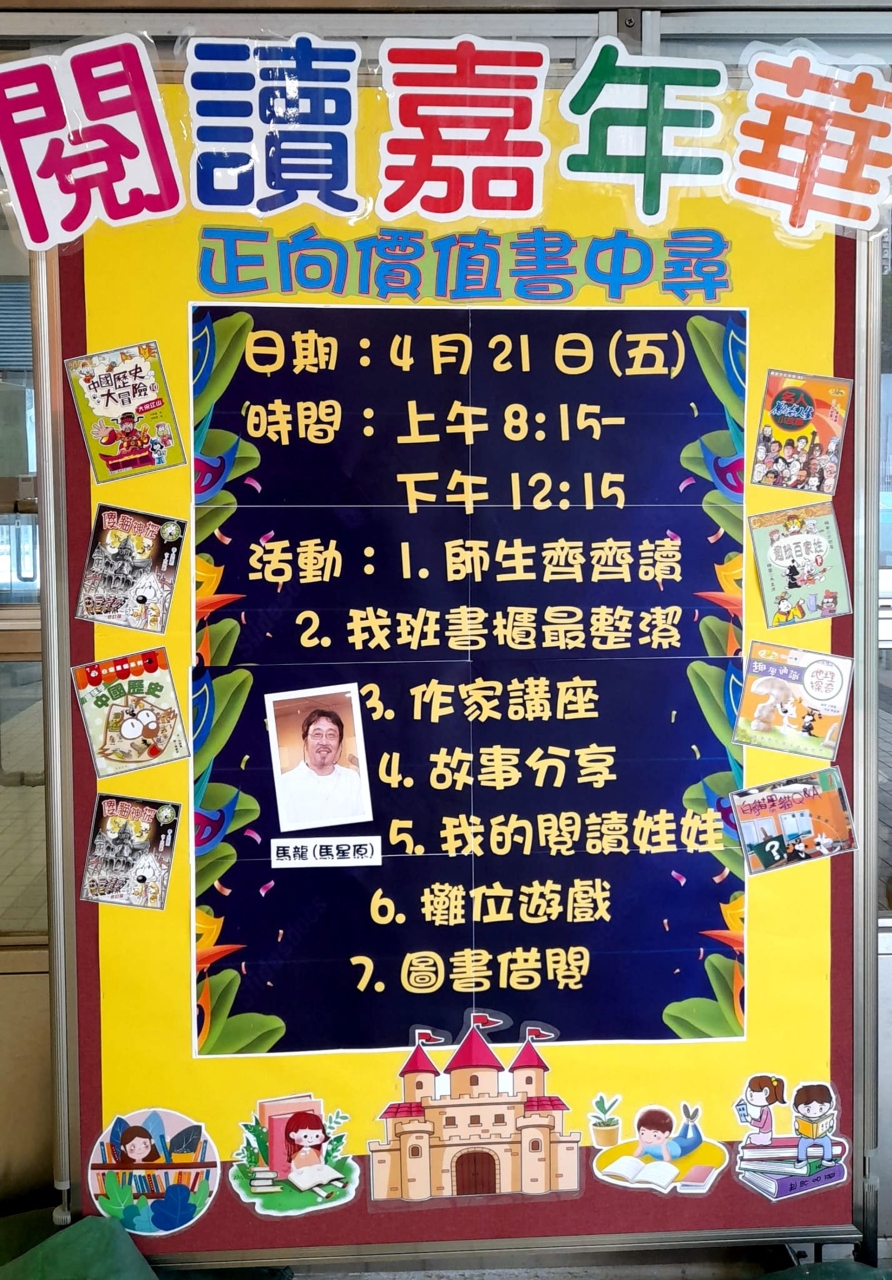 閱讀嘉年華
正向價值書中尋
日期：4月21日(五)
時間：上午8:15-
下午12:15
活動：1. 師生齊齊讀
2. 我班書櫃最整潔
3. 作家講座
4. 故事分享
5. 我的閱讀娃娃
馬龍(馬星原)
6. 攤位遊戲
7. 圖書借閱
中國歷史
大冒險
中國歷史
趣學通識
地理
探奇
趣找百家姓
白貓黑貓Q&A